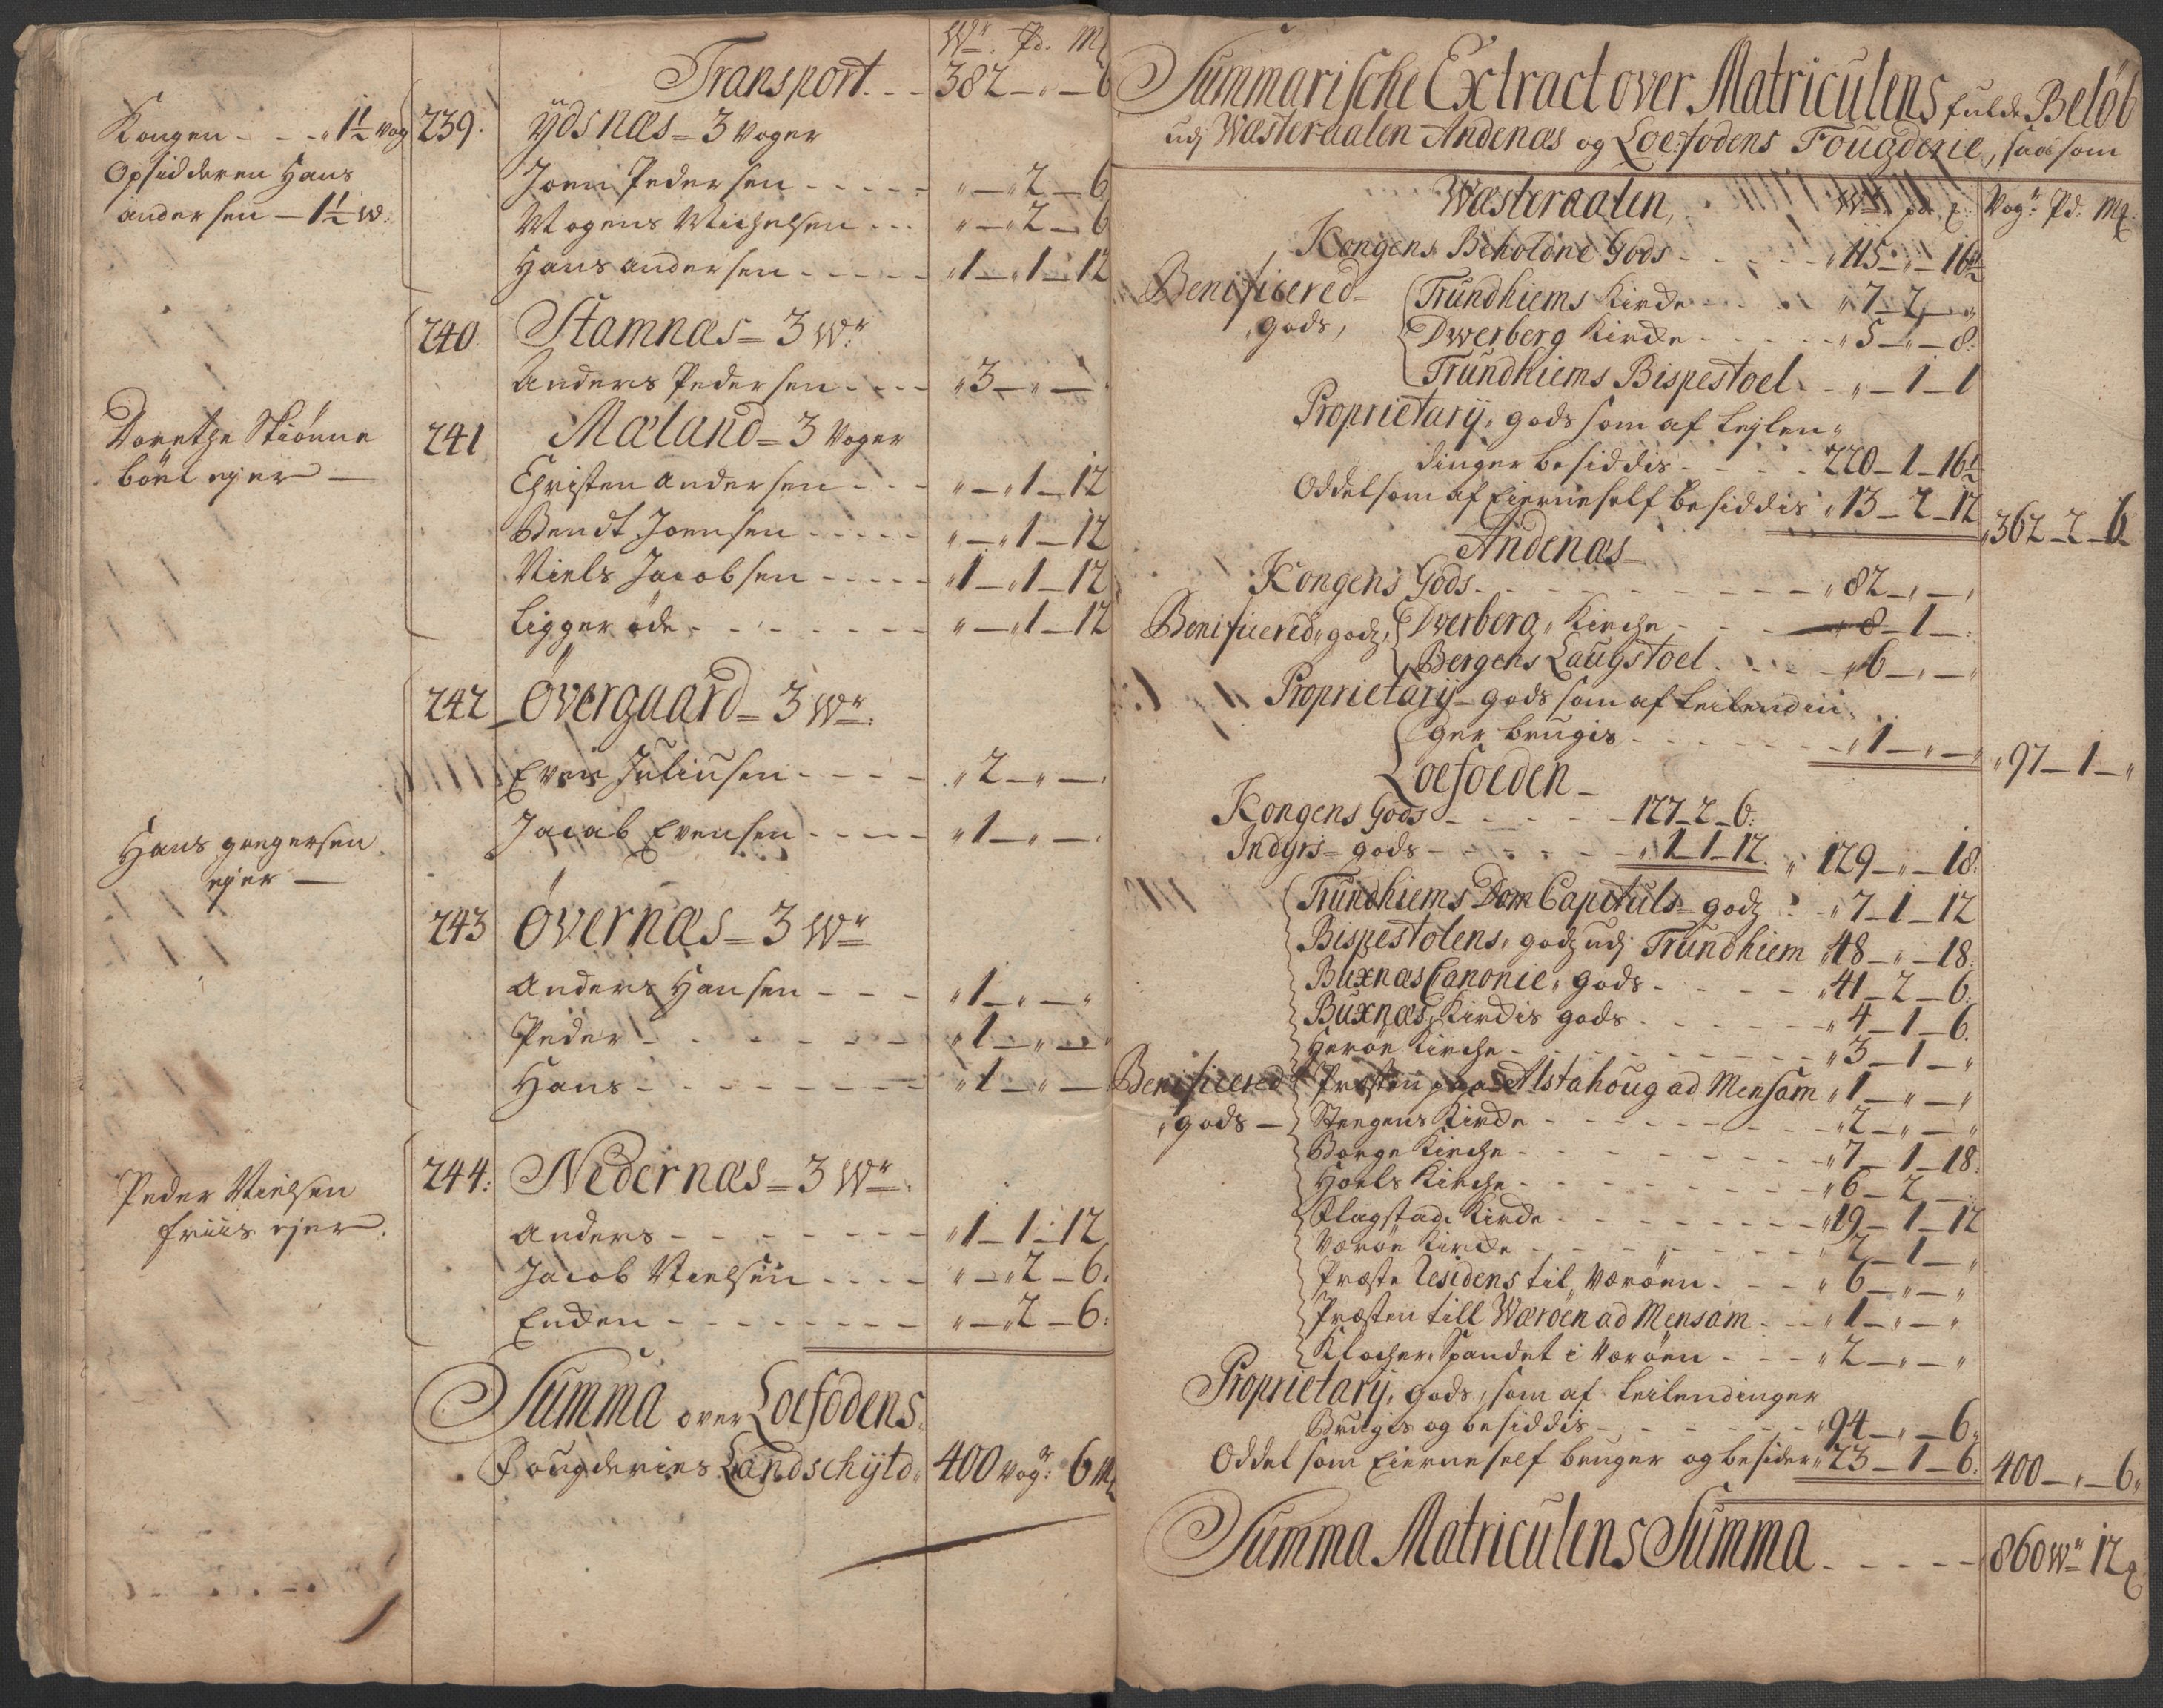 Wr. Pd. Mk
Transport. - - 382 - " - 6
Kongen - - - " 1½ Vog 239. Ydsnæs = 3 Voger
Opsidderen Hans
andersen - 1½ W:
Joen Pedersen - - - - - " - " 2 - 6
Mogens Michelsen - - - " - " 2 - 6
Hans andersen - - - - - " 1 - " 1 - 12
240. Stamnæs = 3 Wr:
Anders Pedersen - - - - " 3 - " -
Dorethe Skiønne
böel ejer -
241 Mæland = 3 Voger
Christen Andersen - - - " - " 1 - 12
Bendt Joensen - - - - - " - " 1 - 12
Niels Jacobsen - - - - - " 1 - " 1 - 12
Ligger øde - - - - - - - " - " 1 - 12
242 Øvergaard = 3 Wr:
Even Juliusen - - - - " 2 - " - "
Jacob Evensen - - - - - " 1 - " - "
Hans gregersen
ejer -
243 Øvernæs = 3 Wr
Anders Hansen - - - " 1 - " - "
Peder - - - - - - - " 1 - " - "
Hans - - - - - - - " 1 - " -
Peder Nielsen
friis ejer.
244: Nedernæs = 3 Wr:
Anders - - - - - - - " 1 - 1 - 12
Jacob Nielsen - - - - " - " 2 - 6.
Enden - - - - - - - - " - " 2 - 6:
Summa over Loefodens
Fougderies Landschyld " 400 Vogr: 6 Mk
Summarische Extract over Matriculens fulde Belöb
udj Wæsteraalen Andenæs og Loefodens Fougderie, saasom
Wæsteraalen, Wr. pd. Mk: Vogr: Pd: Mk:
Kongens Beholdne Gods - - - - - " 115 - " - 16½
Benificered=
gods,
Trundhiems Kirche - - - " 7 - 2 - "
Dwerberg Kirche - - - - - " 5 - " - 8:
Trundhiems Bispestoel - - " - 1 - 1
Proprietarij, gods som af Lejlen"
dinger besiddis - - - - 220 - 1 - 16½
Oddel som af Eierne self besiddis " 13 - 2 - 12 " 362 - 2 - 6
Andenæs -
Kongens Gods - - - - - - - - - - " 82 - " - "
Benificered" godz, Dverberg, Kirche - - - " 8 - 1 - :
Bergens Laugstoel - - - - " 6 - " - "
Proprietarij - gods som af Leilendin"
ger brugis - - - - - - - " 1 - " - " " 97 - 1 - "
Loefoeden -
Kongens Gods - - - - - 127 - 2 - 6:
Indgris - gods - - - - - " 1 - 1 - 12. " 129 - " - 18:
Trundhiems Dom Capituls = godz - - " 7 - 1 - 12
Bispestolens, godz udj Trundhiem " 48 - " - 18:
Buxnæs Canonie, gods - - - - - " 41 - 2 - 6:
Buxnæs, Kirckis gods - - - - - - " 4 - 1 - 6.
Herøe Kirche - - - - - - - - - " 3 - 1 - "
Benificered
gods -
Præsten paa Alstahoug ad Mensam " 1 - " - "
Stegens Kirche - - - - - - - - " 2 - " - "
Borge Kirche - - - - - - - - - " 7 - 1 - 18:
Hoels Kirche - - - - - - - - - " 6 - 2 - :
Flagstad Kirche - - - - - - - - " 19 - 1 - 12
Værøe Kirche - - - - - - - - - " 2 - 1 - "
Præste Residens til Værøen - - - " 6 - " - "
Præsten till Wærøen ad Mensam - - " 1 - " - "
Klocher, Spandet i Værøen - - - " 2 - " - "
Proprietarij, gods, som af Leilendinger
Brugis og besiddis - - - - - - - " 94 - " - 6"
Oddel som Eierne self bruger og besider " 23 - 1 - 6. 400 - " - 6"
Summa Matriculens Summa - - - - - 860 Wr 12 Mk